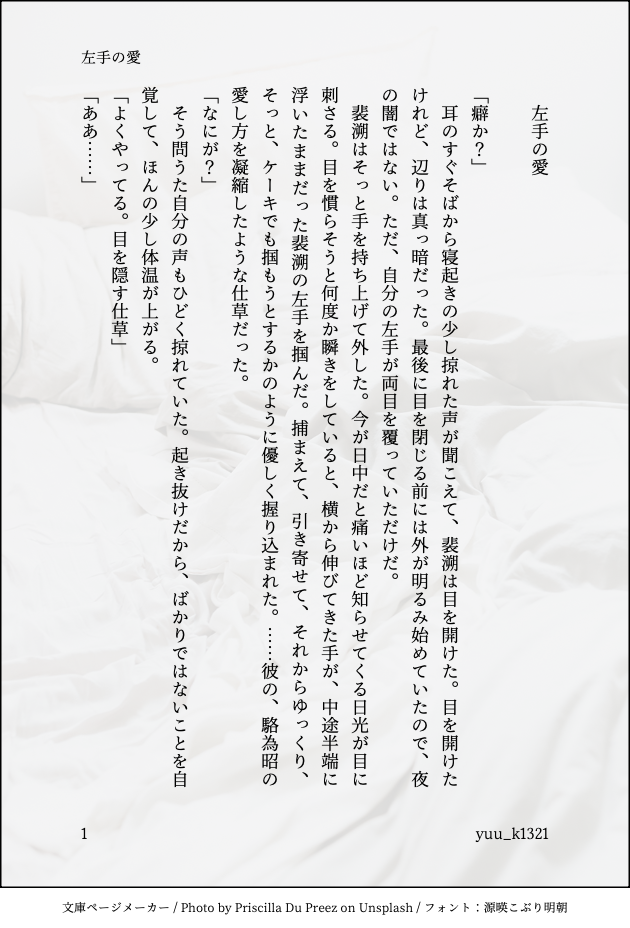 左手の愛
左手の愛
「癖か？」
　耳のすぐそばから寝起きの少し掠れた声が聞こえて、裴溯は目を開けた。目を開けた
けれど、辺りは真っ暗だった。最後に目を閉じる前には外が明るみ始めていたので、夜
の闇ではない。ただ、自分の左手が両目を覆っていただけだ。
　裴溯はそっと手を持ち上げて外した。今が日中だと痛いほど知らせてくる日光が目に
刺さる。目を慣らそうと何度か瞬きをしていると、横から伸びてきた手が、中途半端に
浮いたままだった裴溯の左手を掴んだ。捕まえて、引き寄せて、それからゆっくり、
そっと、ケーキでも掴もうとするかのように優しく握り込まれた。……彼の、駱為昭の
愛し方を凝縮したような仕草だった。
「なにが？」
　そう問うた自分の声もひどく掠れていた。起き抜けだから、ばかりではないことを自
覚して、ほんの少し体温が上がる。
「よくやってる。目を隠す仕草」
「ああ……」
1
yuu_k1321
文庫ページメーカー / Photo by Priscilla Du Preez on Unsplash / フォント：源暎こぶり明朝